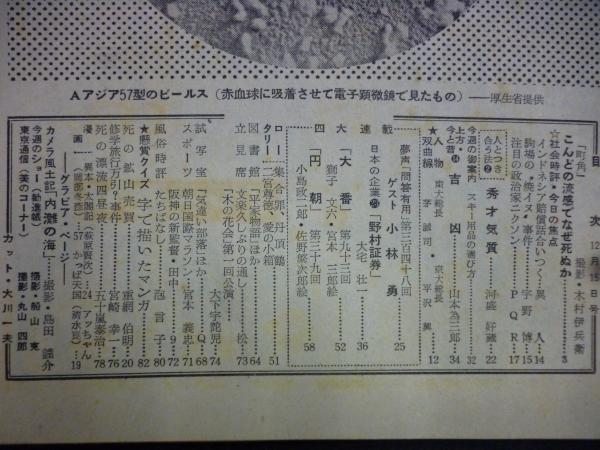 Aアジア57型のビールス(赤血球に吸着させて電子顕微鏡で見たもの)——厚生省提供
目 次 12月15日号
「町角」 撮影・木村伊兵衛
こんどの流感でなぜ死ぬか 3
☆社会時評・今日の焦点
インドネシア賠償話合いつく・翼 人・14
駒場の〝焼イヌ〟事件 宇野 博・15
注目の政治家ニクソン P Q R・17
人とつき合う法② 秀才気質 河盛好蔵・22
今週の御案内 スキー用品の選び方 32
上方・今と昔⑭ 吉凶 山本為三郎・34
★人物双曲線 茅誠司・東大総長 平沢興・京大総長 12
連載
夢声「問答有用」第三百四十八回
ゲスト 小林 勇 25
日本の企業㉕「野村証券」 大宅壮一 36
「大番」第九十三回
獅子文六・宮本三郎絵 52
「円朝」第三十九回
小島政二郎・佐野繁次郎絵 58
ロータリー 集合罪、丹頂鶴 二宮尊徳、愛の小箱 51
図書館 「平家物語」ほか 64
立見席 文楽久しぶりの通し 松・73
「木の花会」第一回公演 大下宇陀児・74
試写室 「気違い部落」ほか Q・68
スポーツ 朝日国際マラソン 宮本義忠・71
阪神の新監督・田中 9・72
風俗時評 たちばなし 忽言子・80
★懸賞クイズ 字で描いたマンガ 82
死の鉱山売買 重網伯明・20
修学旅行万引?事件 宮崎幸一・76
死の漂流四昼夜 五十嵐泰治・78
漫画 異本・太閤記(萩原賢次)24 アッちゃん
(岡部冬彦)57 かっぱ天国(清水崑)19
——グラビア・ページ——
カメラ風土記「内灘の海」 撮影・島田謹介
今週のショー(勧進帳) 撮影・船山 克
東京通信(美のコーナー) 撮影・丸山四郎
カット・大川一夫